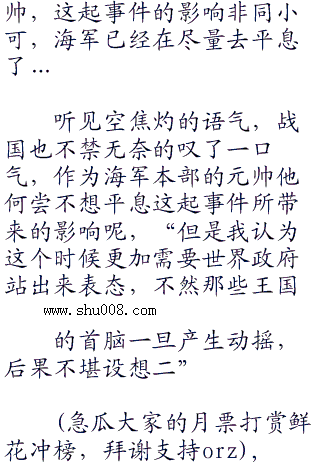 帅，这起事件的影响非同小
可，海军已经在尽量去平息
了...
听见空焦灼的语气，战
国也不禁无奈的叹了一口
气，作为海军本部的元帅他
何尝不想平息这起事件所带
来的影响呢，“但是我认为
这个时候更加需要世界政府
站出来表态，不然那些王国
www.shu008.com
的首脑一旦产生动摇，
后果不堪设想二”
(急瓜大家的月票打赏鲜
花冲榜，拜谢支持orz)，